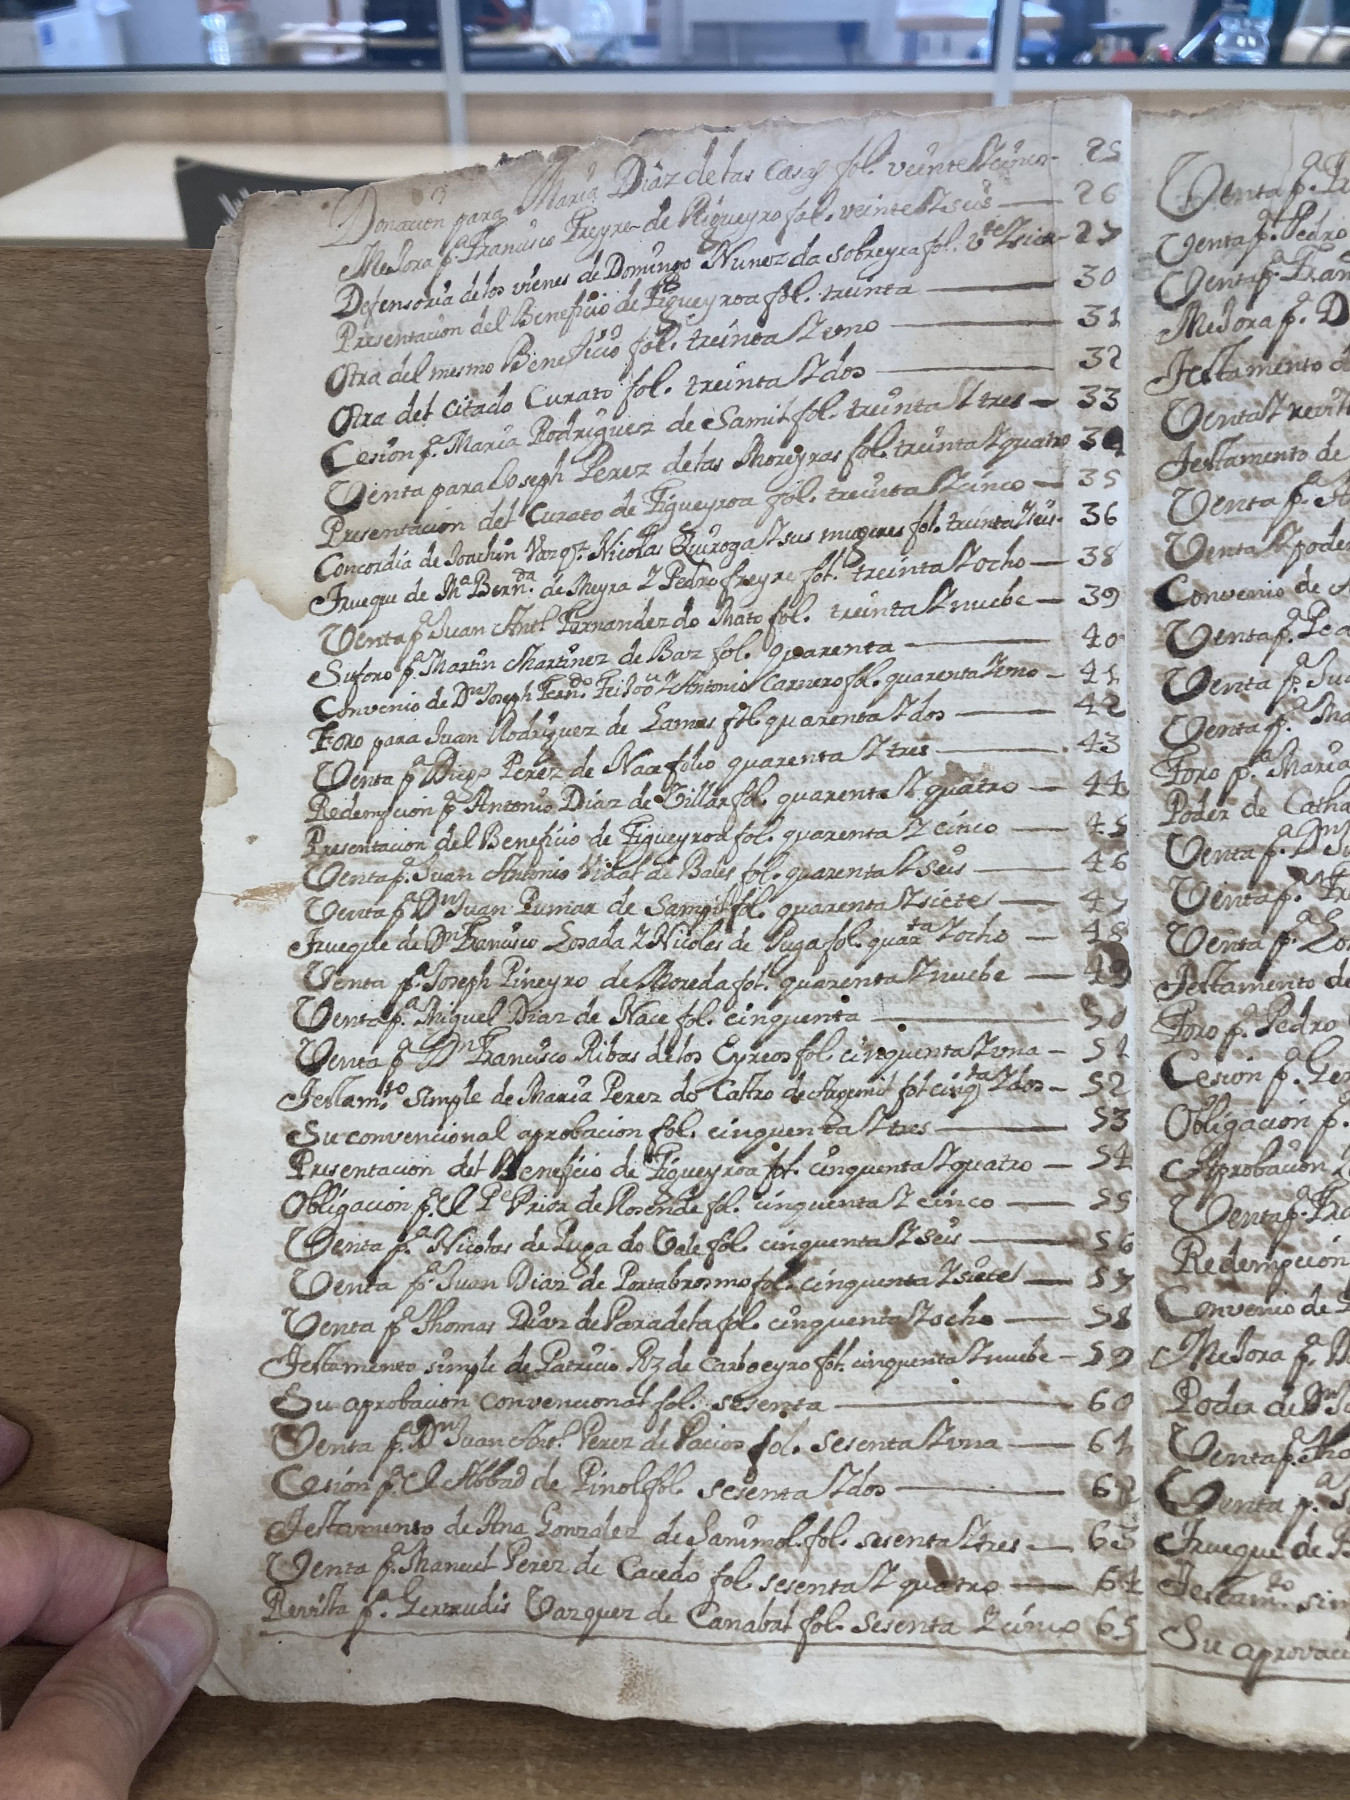 Donacion para Maria Diaz de las Casas fol. veinte Y cinco - 25
Mejora pª. Francisco Freyre de Figueyro fol. veinte Y seis — 26
Defensoria de los vienes de Domingo Nunez da sobreyra fol. vte Y siete - 27
Presentacion del Beneficio de Figueyroa fol. treinta — 30
Otra del mesmo Beneficio fol. treinta Y uno — 31
Otra del citado Curato fol. treinta Y dos — 32
Cesion pª. Maria Rodriguez de Samil fol. treinta Y tres — 33
Venta para Joseph Perez de las Moreyras fol. treinta Y quatro 34
Presentacion del Curato de Figueyroa fol. treinta Y cinco — 35
Concordia de Joachin Vazqz. Nicolas Quiroga Y sus mugeres fol. treinta Y seis. 36
Trueque de Mª Bernda. de Neyra Y Pedro freyre fol. treinta Y ocho — 38
Venta pª Juan Antº. Fernandez do Mato fol. treinta Y nuebe — 39
Suforo pª. Martin Martinez de Baz fol. quarenta — 40
Convenio de Dn Joseph Ferndo Antonio Carnero fol. quarenta Y uno - 41
Foro para Juan Rodriguez de Lamas fol quarenta Y dos — 42
Venta pª Diego Perez de Nace folio quarenta Y tres — 43
Redempcion pª Antonio Diaz de Villar fol. quarenta Y quatro — 44
Presentacion del Beneficio de Figueyroa fol. quarenta Y cinco — 45
Venta pª. Juan Antonio Vidal de Bales fol. quarenta Y seis — 46
Venta pª Dn Juan Pumar de Samil fol. quarenta Y siete — 47
Trueque de Dn Francisco Losada Y Nicolas de Puga fol. quarta Y ocho — 48
Venta pª. Joseph Pineyro de Moreda fol. quarenta Y nuebe — 49
Venta pª. Miguel Diaz de Nace fol. cinquenta — 50
Venta pª Dn Francisco Ribas de los Eyreos fol. cinquenta Y una — 51
Testamto. simple de Maria Perez do Castro de Argemil fol cinqta Y dos — 52
Su convencional aprobacion fol. cinquenta Y tres — 53
Presentacion del Beneficio de Figueyroa fol. cinquenta Y quatro — 54
Obligacion pª. El Pe Prior de Rosende fol. cinquenta Y cinco — 55
Venta pª. Nicolas de Puga do Vale fol. cinquenta Y seis — 56
Venta pª. Juan Diaz de Portabrosmo fol. cinquenta Y siete — 57
Venta pª Thomas Diaz de Paradela fol. cinquenta Y ocho — 58
Testamento simple de Patricio Rz de Carboeyro fol. cinquenta Y nuebe - 59
Su aprobacion convencional fol. sesenta — 60
Venta pª. Dn Juan Antº. Perez de Pacios fol. sesenta Y una — 61
Cesion pª. El Abbad de Pinol fol. sesenta Y dos — 62
Testamento de Ana Gonzalez de fol. sesenta Y tres — 63
Venta pª. Manuel Perez de Cacedo fol. sesenta Y quatro — 64
Revista pª. Gertrudis Vazquez de Canabal fol. sesenta Y cinco 65
Venta pª.
Venta pª. Pedro
Venta pª. Fran
Mejora pª. D
Testamento d
Venta Y
Testamento de
Venta pª.
Venta Y poder
Convenio de
Venta pª.
Venta pª. Ju
Venta pª. Ma
Foro pª. Maria
Poder de Catha
Venta pª. Dn
Venta pª. Fr
Venta pª. Lo
Testamento de
Foro pª. Pedro
Cesion pª. Ger
Obligacion pª.
Aprobacion
Venta pª.
Redempcion
Convenio de
Mejora pª.
Poder de Dn
Venta pª. Tho
Venta pª.
Trueque de
Testamto. sim
Su aprovaci